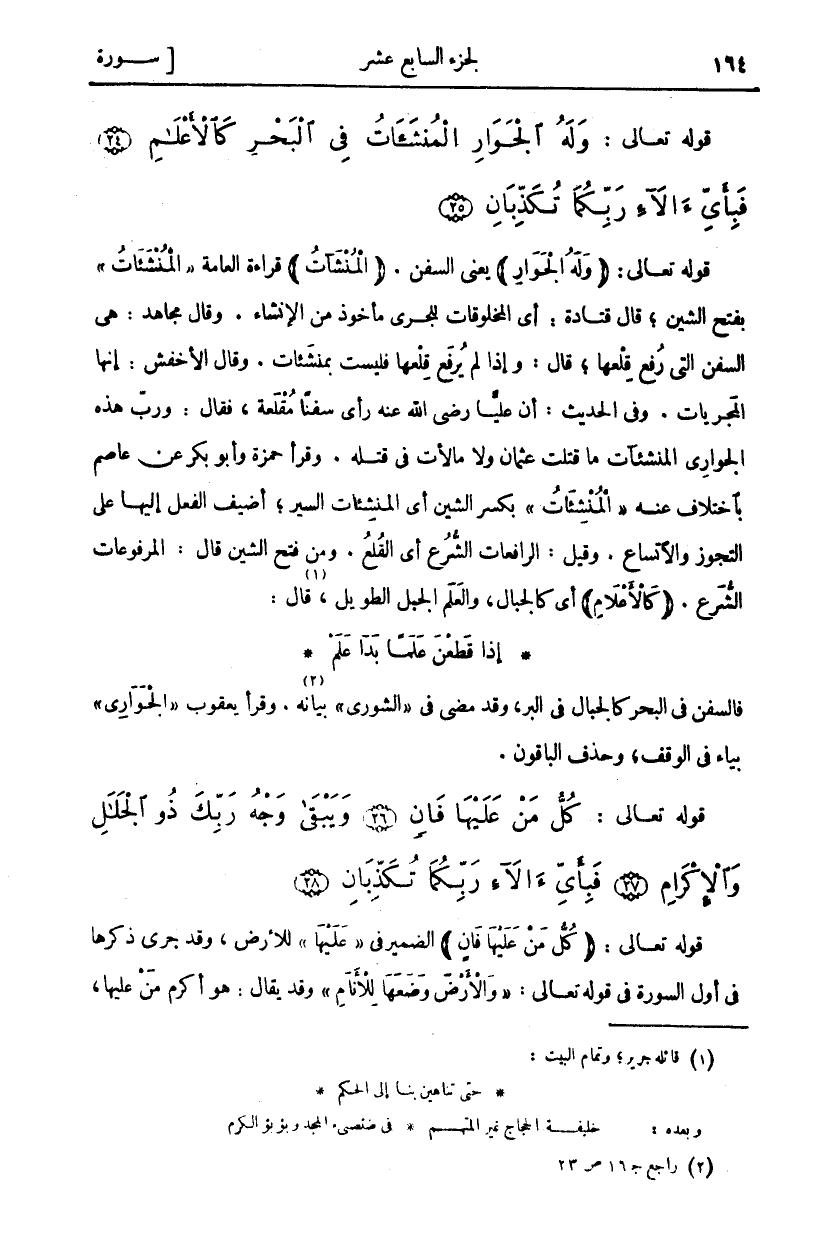 ١٦٤ لجزء السابع عشر [ ســورة
قوله تعـالى : وَلَهُ ٱلْجَـوَارِ ٱلْمُنشَـَٔاتُ فِى ٱلْبَحْـرِ كَٱلْأَعْلَـٰمِ ﴿٢٤﴾
فَبِأَىِّ ءَالَآءِ رَبِّـكُمَا تُـكَذِّبَانِ ﴿٢٥﴾
قوله تعـالى : ﴿ وَلَهُ الْجَوَارِ ﴾ يعنى السفن . ﴿ الْمُنْشَآتُ ﴾ قراءة العامة « الْمُنْشَئَاتُ »
بفتح الشين ؛ قال قتـادة : أى المخلوقات للجرى مأخوذ من الإنشاء . وقال مجاهد : هى
السفن التى رُفع قِلْعها ؛ قال : و إذا لم يُرفَع قِلْعها فليست بمنشَئات . وقال الأخفش : إنها
المُجريات . وفى الحديث : أن عليًّا رضى الله عنه رأى سفنًا مُقْلَعة ، فقال : وربّ هذه
الجوارى المنشئآت ما قتلت عثمان ولا مالأت فى قتـله . وقرأ حمزة وأبو بكر عن عاصم
بٱختلاف عنـه « الْمُنْشِئَاتُ » بكسر الشين أى المنشِئات السير ؛ أضيف الفعل إليهـا على
التجوز والٱتساع . وقيل : الرافعات الشُّرُع أى القُلُع . ومن فتح الشين قال : المرفوعات
الشُّرع . ﴿ كَالْأَعْلَامِ ﴾ أى كالجبال ، والعَلَم الجبل الطويل (١) ، قال :
* إذا قَطَعْنَ عَلَمًـا بَدَا عَلَمْ *
فالسفن فى البحر كالجبال فى البر ، وقد مضى فى «الشورى» بيانه (٢) . وقرأ يعقوب «الْجَوَارِى»
بياء فى الوقف ؛ وحذف الباقون .
قوله تعـالى : كُلُّ مَنْ عَلَيْهَا فَانٍ ﴿٢٦﴾ وَيَبْقَىٰ وَجْهُ رَبِّكَ ذُو ٱلْجَلَـٰلِ
وَٱلْإِكْرَامِ ﴿٢٧﴾ فَبِأَىِّ ءَالَآءِ رَبِّـكُمَا تُـكَذِّبَانِ ﴿٢٨﴾
قوله تعـالى : ﴿ كُلُّ مَنْ عَلَيْهَا فَانٍ ﴾ الضمير فى « عَلَيْهَا » للأرض ، وقد جرى ذكرها
فى أول السورة فى قوله تعـالى : « وَالْأَرْضَ وَضَعَهَا لِلْأَنَامِ » وقد يقال : هو أكرم مَنْ عليها ،
(١) قائله جرير ؛ وتمام البيت :
* حتى تناهين بنـا إلى الحكم *
و بعده : خليفـة الحجاج غير المتهـم * فى ضئضىء المجد و بؤبؤ الكرم
(٢) راجع جـ ١٦ صـ ٢٣